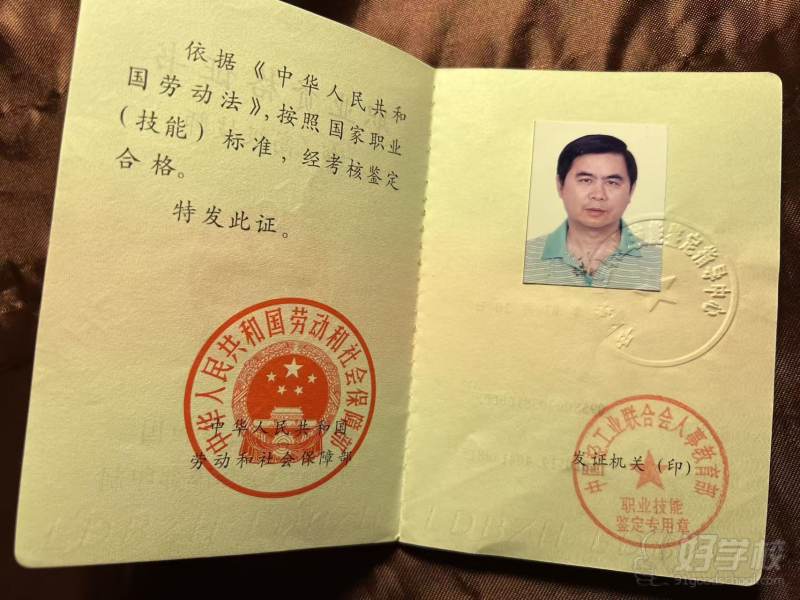 依据《中华人民共和
国劳动法》，按照国家职业
(技能)标准，经考核鉴定
合格。
特发此证。
中华人民共和国劳动和社会保障部
中华人民共和国
劳动和社会保障部
定指导中心
工业联合会人事教育部
发证机关(印)
职业技能
鉴定专用章
好学校
91goodschool.com